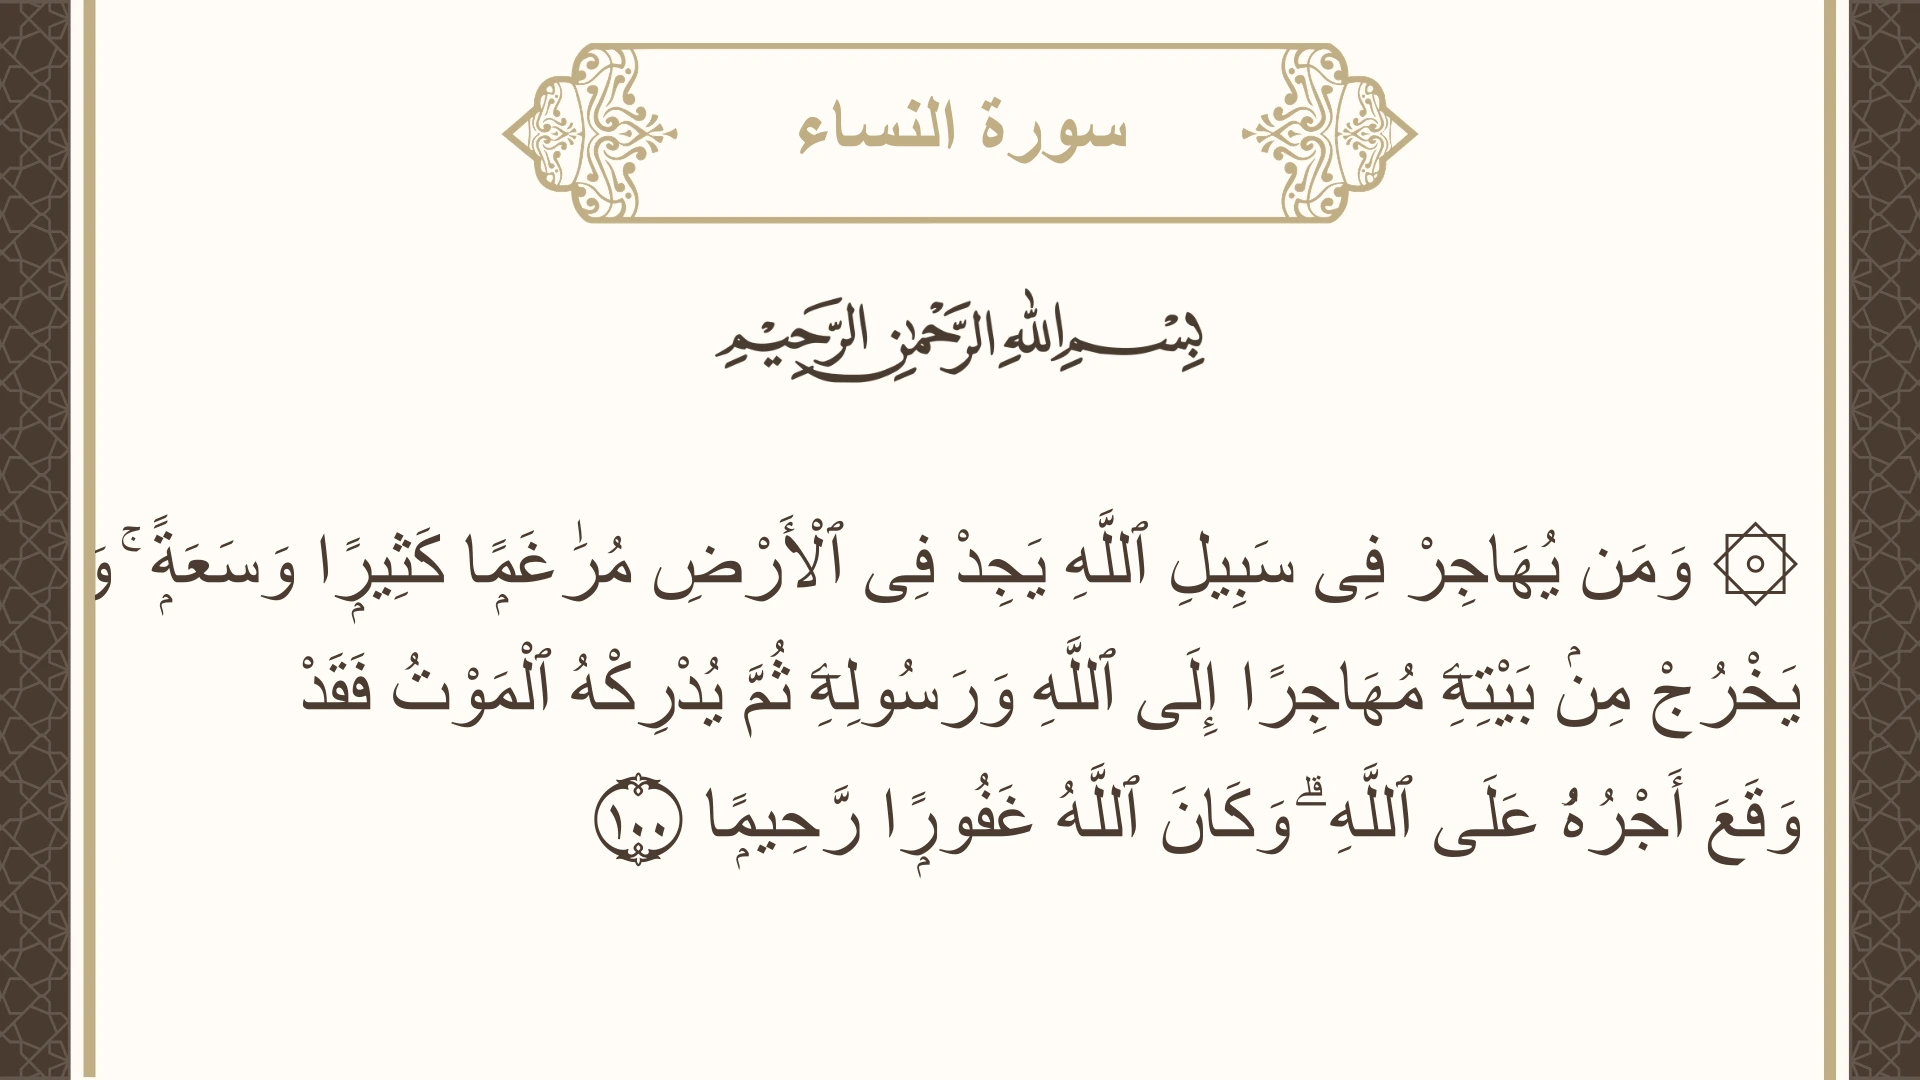 سورة النساء
بِسْمِ اللهِ الرَّحْمٰنِ الرَّحِيْمِ
۞ وَمَن يُهَاجِرْ فِى سَبِيلِ ٱللَّهِ يَجِدْ فِى ٱلْأَرْضِ مُرَٰغَمًۭا كَثِيرًۭا وَسَعَةًۭ ۚ وَ
يَخْرُجْ مِنۢ بَيْتِهِۦ مُهَاجِرًا إِلَى ٱللَّهِ وَرَسُولِهِۦ ثُمَّ يُدْرِكْهُ ٱلْمَوْتُ فَقَدْ
وَقَعَ أَجْرُهُۥ عَلَى ٱللَّهِ ۗ وَكَانَ ٱللَّهُ غَفُورًۭا رَّحِيمًۭا ١٠٠